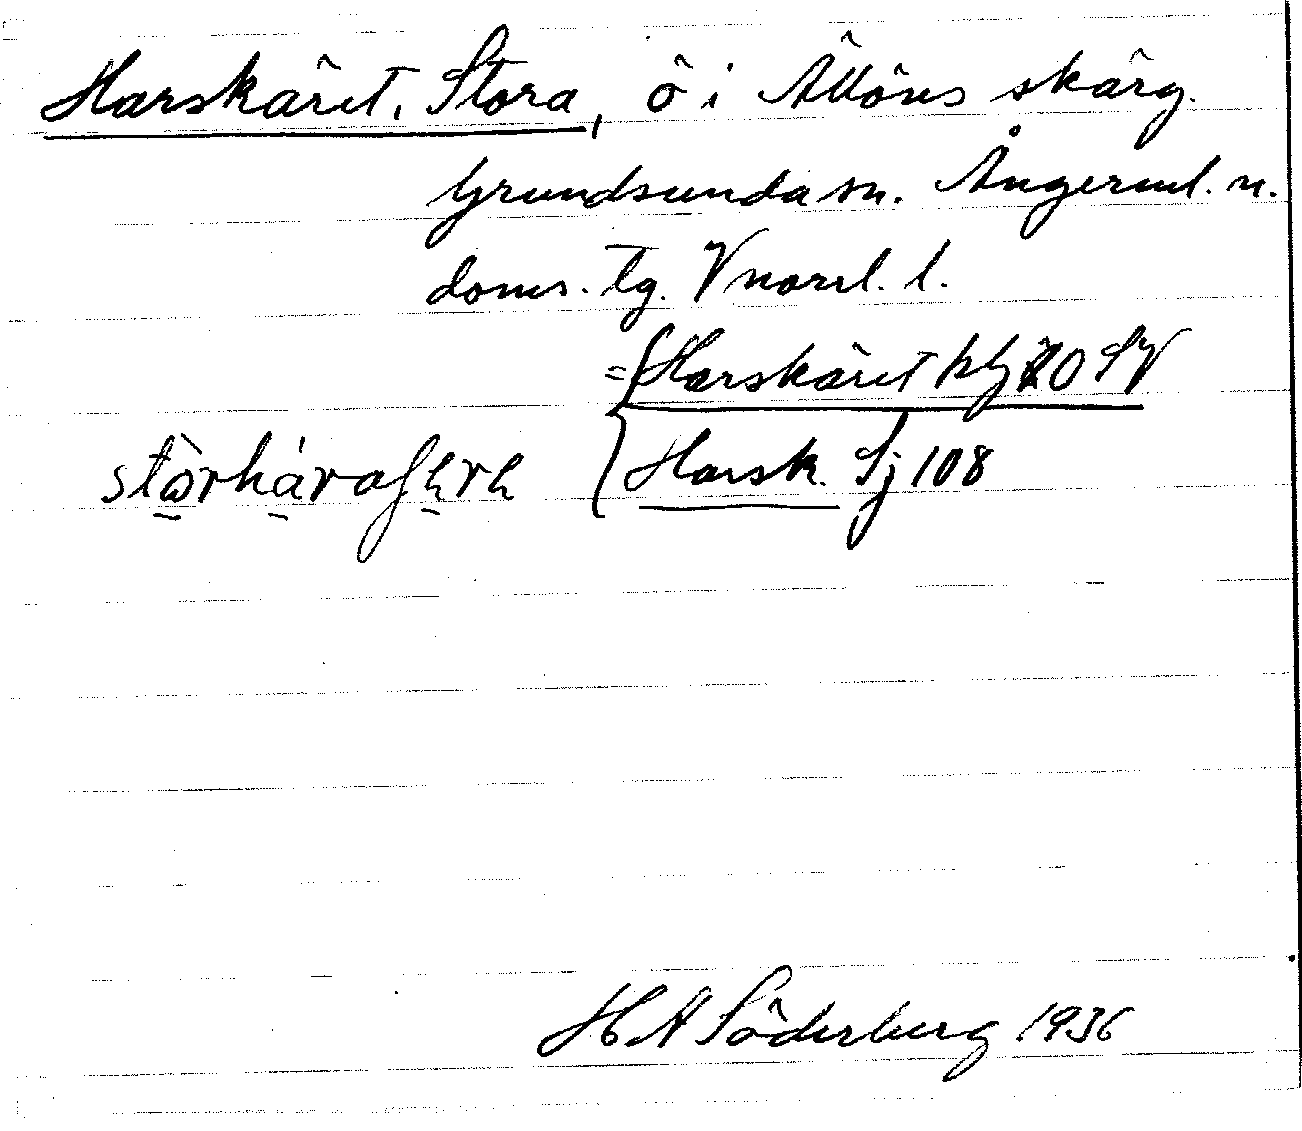 Harskäret, Stora, ö i Ällöns skärg.
Grundsunda sn. Ångerml. n.
doms. tg. Vnorrl. l.
= Harskäret SV
Harsk. Sj 108
H A Söderberg 1936